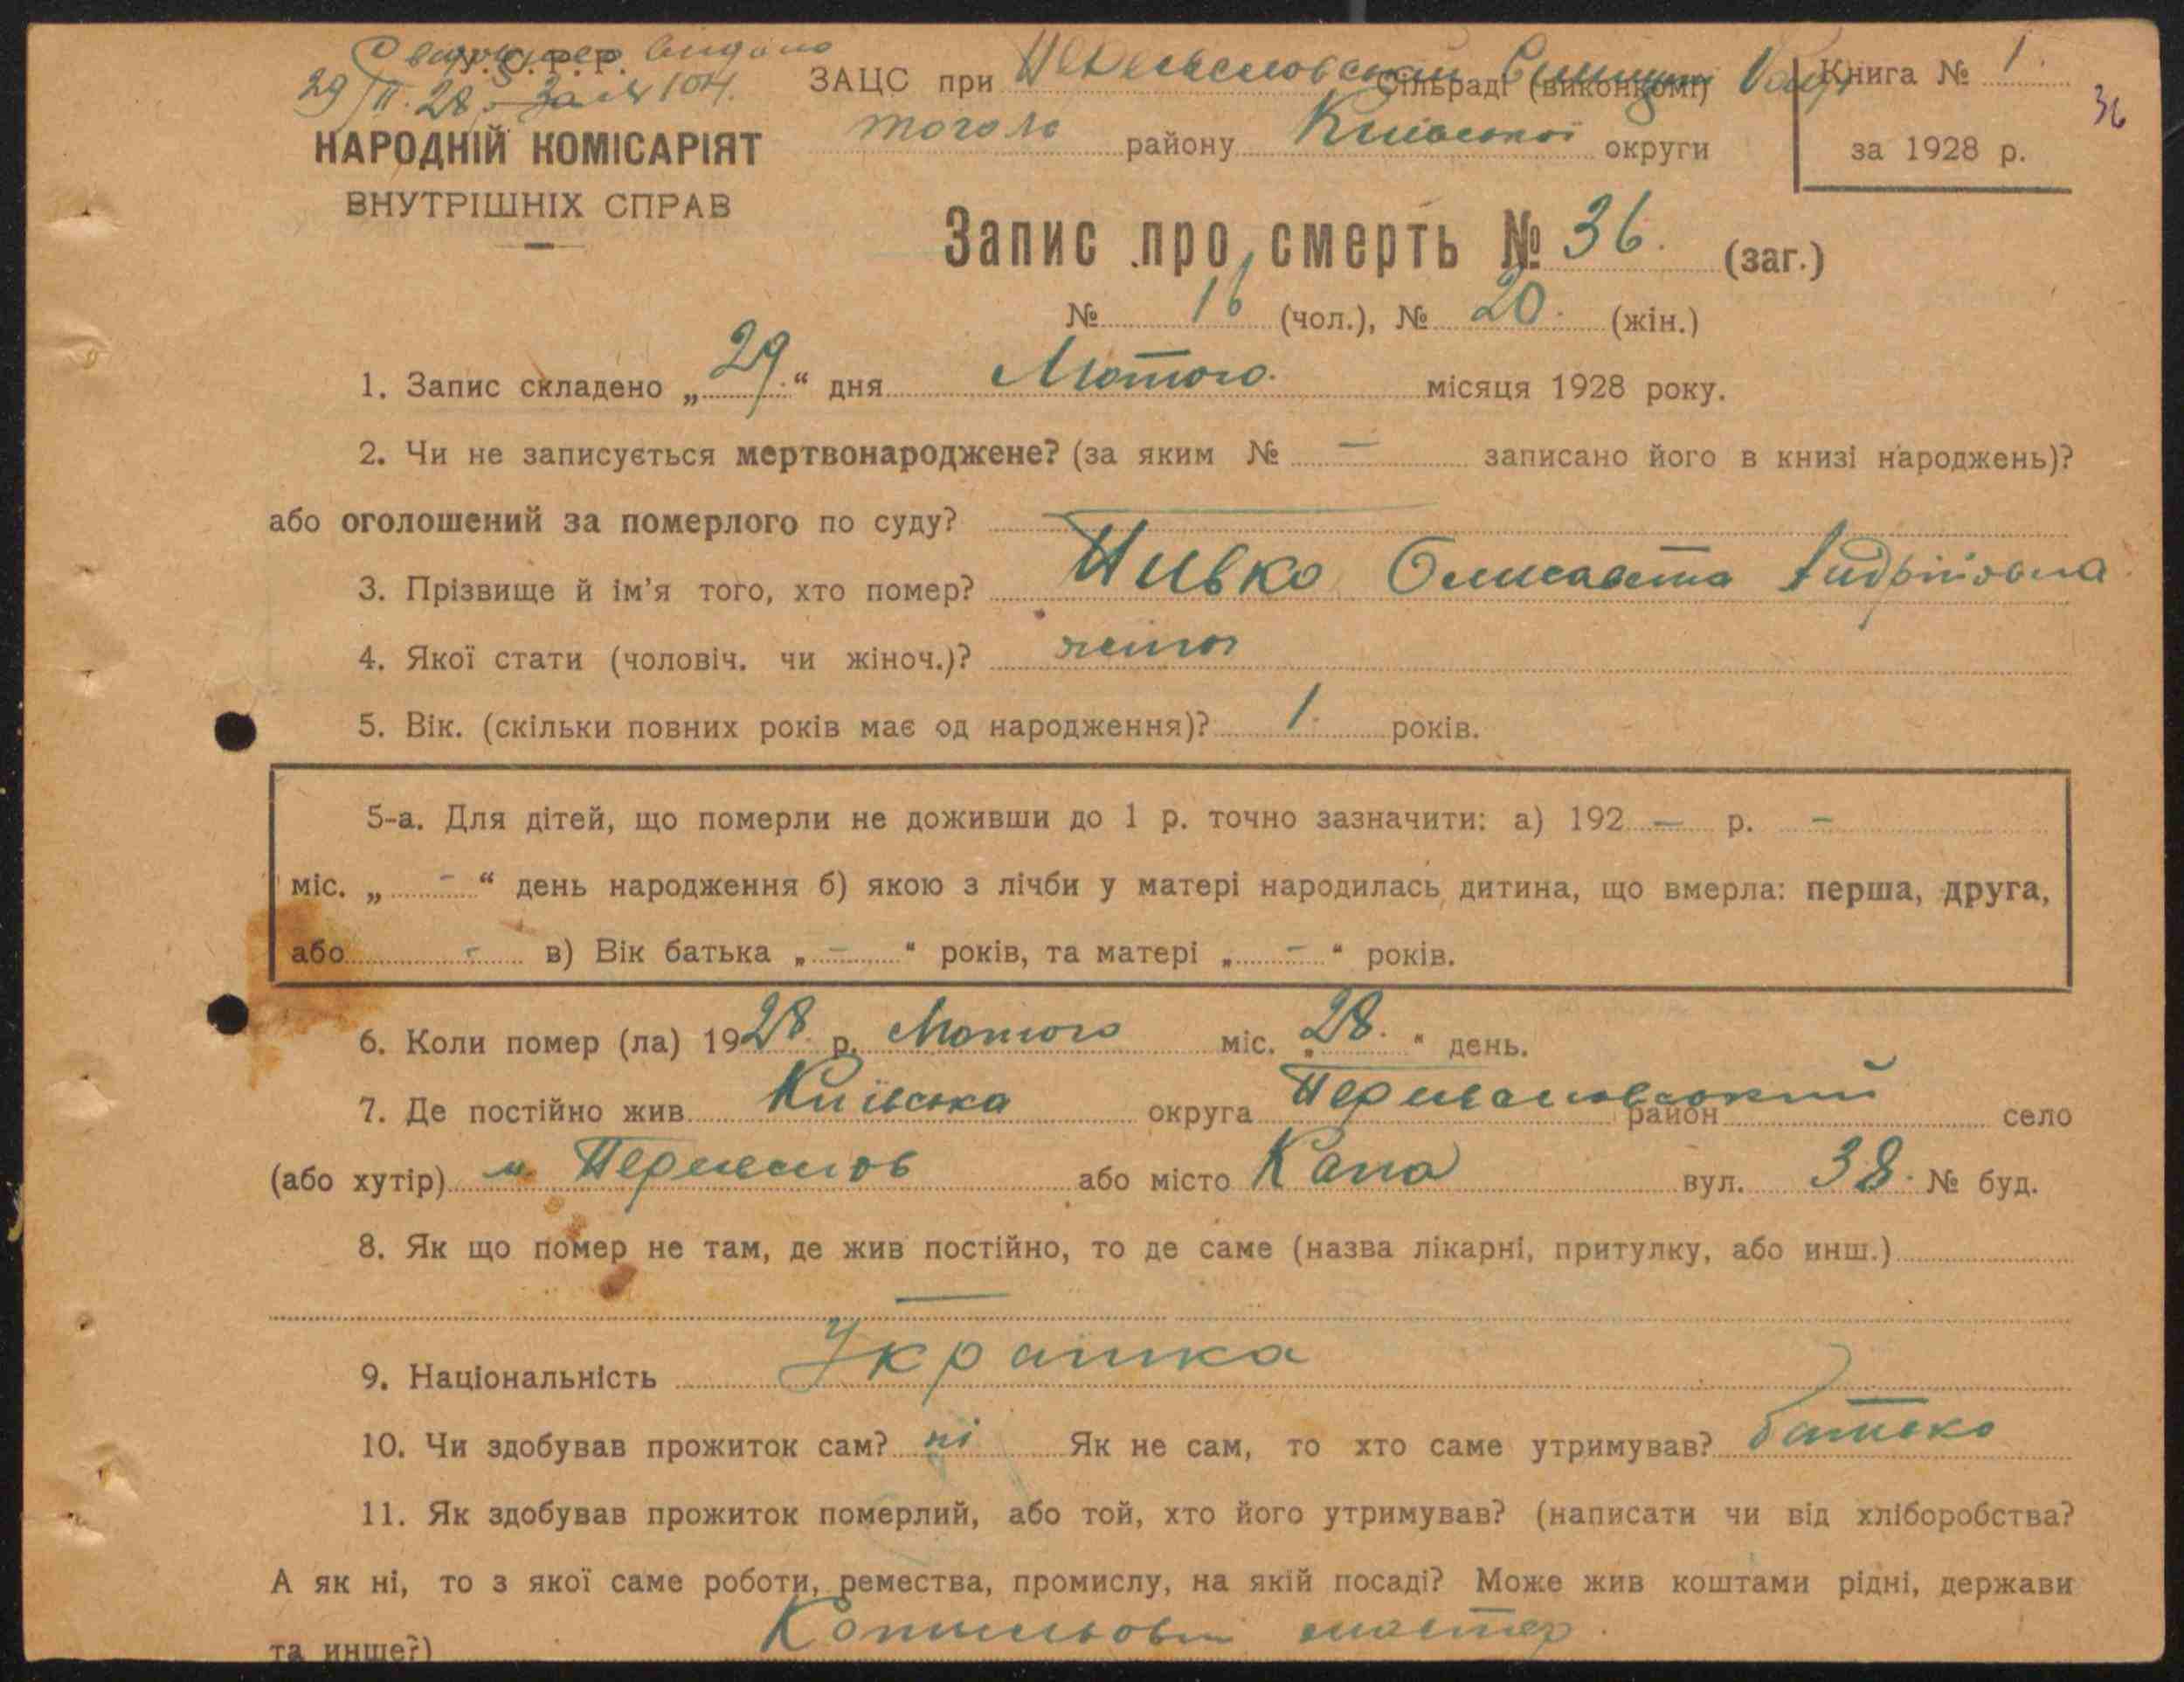 У.С.Р.Р. видано
29/II.28. за № 104.
ЗАЦС при Переяславський Сільраді (виконкомі) Книга № 1.
того ж району Київської округи за 1928 р.
36
НАРОДНІЙ КОМІСАРІЯТ
ВНУТРІШНІХ СПРАВ
Запис про смерть № 36. (заг.)
№ 16 (чол.), № 20. (жін.)
1. Запис складено „29.“ дня Лютого. місяця 1928 року.
2. Чи не записується мертвонароджене? (за яким № — записано його в книзі народжень)?
або оголошений за померлого по суду? —
3. Прізвище й ім'я того, хто помер? Пивко Єлисавета Андріївна.
4. Якої стати (чоловіч. чи жіноч.)?
5. Вік. (скільки повних років має од народження)? 1. років.
5-а. Для дітей, що померли не доживши до 1 р. точно зазначити: а) 192 — р. —
міс. „ - “ день народження б) якою з лічби у матері народилась дитина, що вмерла: перша, друга,
або - в) Вік батька „ — “ років, та матері „ — “ років.
6. Коли помер (ла) 1928. р. Лютого міс. „28.“ день.
7. Де постійно жив Київська округа Переяславський район село
(або хутір) м. Переяслав або місто вул. 38. № буд.
8. Як що помер не там, де жив постійно, то де саме (назва лікарні, притулку, або инш.)
—
9. Національність Українка
10. Чи здобував прожиток сам? ні Як не сам, то хто саме утримував? батько
11. Як здобував прожиток померлий, або той, хто його утримував? (написати чи від хліборобства?
А як ні, то з якої саме роботи, ремества, промислу, на якій посаді? Може жив коштами рідні, держави
та инше?) майстер.